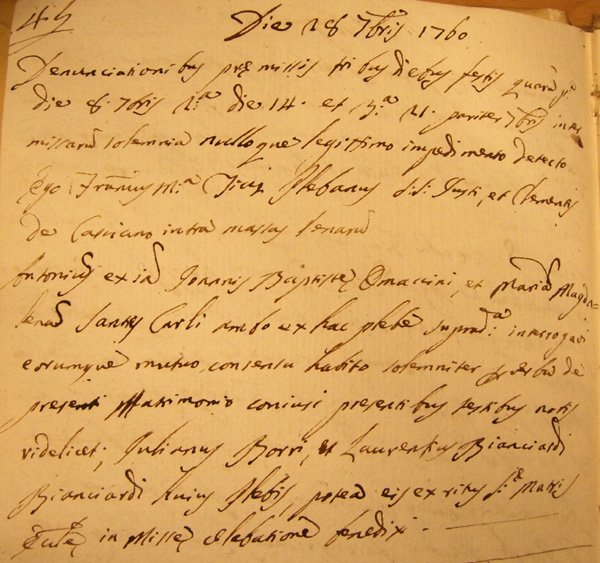 Die 28 7bris 1760
Denunciationibus prę missis tribus diebus festis quarū pa
die 8. 7bris 2.a die 14. et 3.a 21. pariter 7bris inter
missarū solemnia nulloque legittimo impedimento detecto
Ego Frānius Ma Stefanus S.S. Justi, et Clementis
de Casciano intra massas Senarū
Antoniū ex iā Joannis Baptistę Omaccini, et Mariā Magda=
lenā Santis Carli ambo ex hac plebe supradta interrogavi
eorumque mutuo consensu habito solemniter p verba de
presenti Matrimonio coniusi presentibus testibus notis
videlicet; Julianus Borri, et Laurentius Bianciardi
Bianciardi huius Plebis, postea eis ex ritu S.ę Matris
Ecclę in Missę celebratione benedixi.